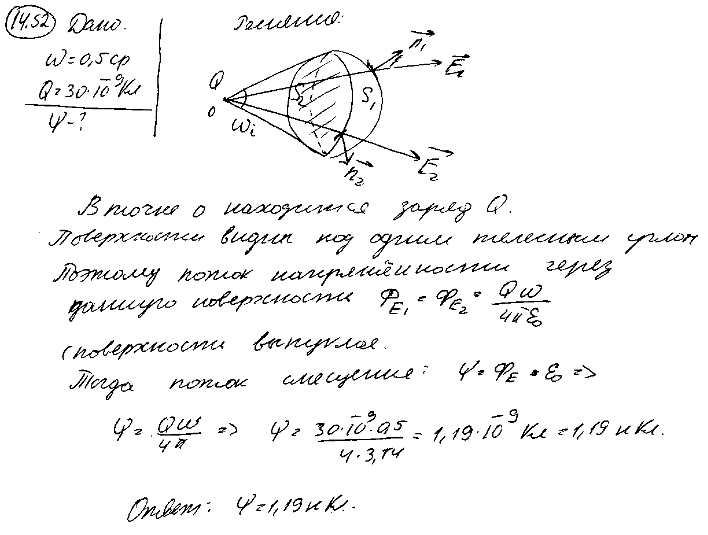 14.52 Дано: Решение:
ω=0,5 ср
Q=30·10⁻⁹ Кл
Ψ-?
Q
O
ωi
S₂
S₁
n₁
E₁
n₂
E₂
В точке О находится заряд Q.
Поверхности видны под одним телесным углом
Поэтому поток напряжённости через
данную поверхности Φ_E₁ = Φ_E₂ = Qω/4πε₀
(поверхности выпуклое.
Тогда поток смещение: Ψ = Φ_E · ε₀ =>
Ψ = Qω/4π => Ψ = 30·10⁻⁹·0,5/4·3,14 = 1,19·10⁻⁹ Кл = 1,19 нКл.
Ответ: Ψ = 1,19 нКл.